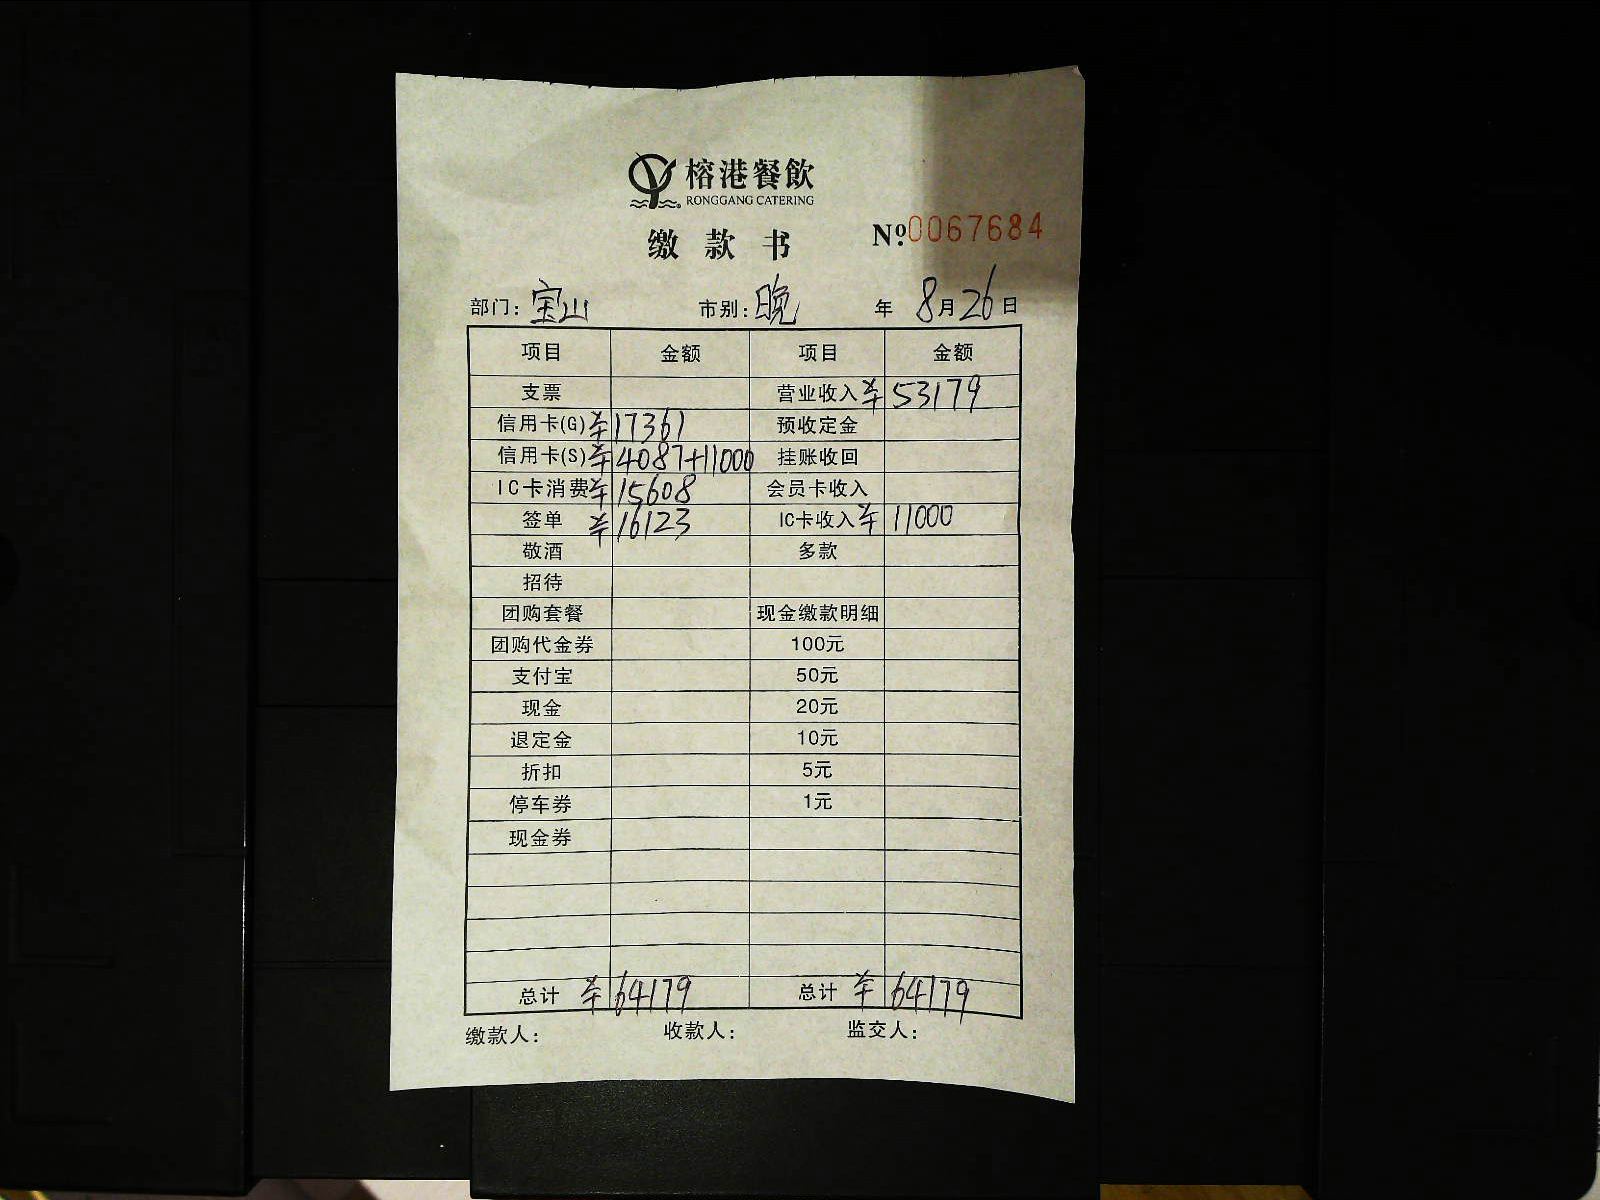 榕港餐飲
RONGGANG CATERING
缴款书 №:0067684
部门：宝山 市别：晚 年 8月26日
项目 金额 项目 金额
支票 营业收入 ¥53179
信用卡(G) ¥17361 预收定金
信用卡(S) ¥4087+11000 挂账收回
IC卡消费 ¥15608 会员卡收入
签单 ¥16123 IC卡收入 ¥11000
敬酒 多款
招待
团购套餐 现金缴款明细
团购代金券 100元
支付宝 50元
现金 20元
退定金 10元
折扣 5元
停车券 1元
现金券
总计 ¥64179 总计 ¥64179
缴款人： 收款人： 监交人：